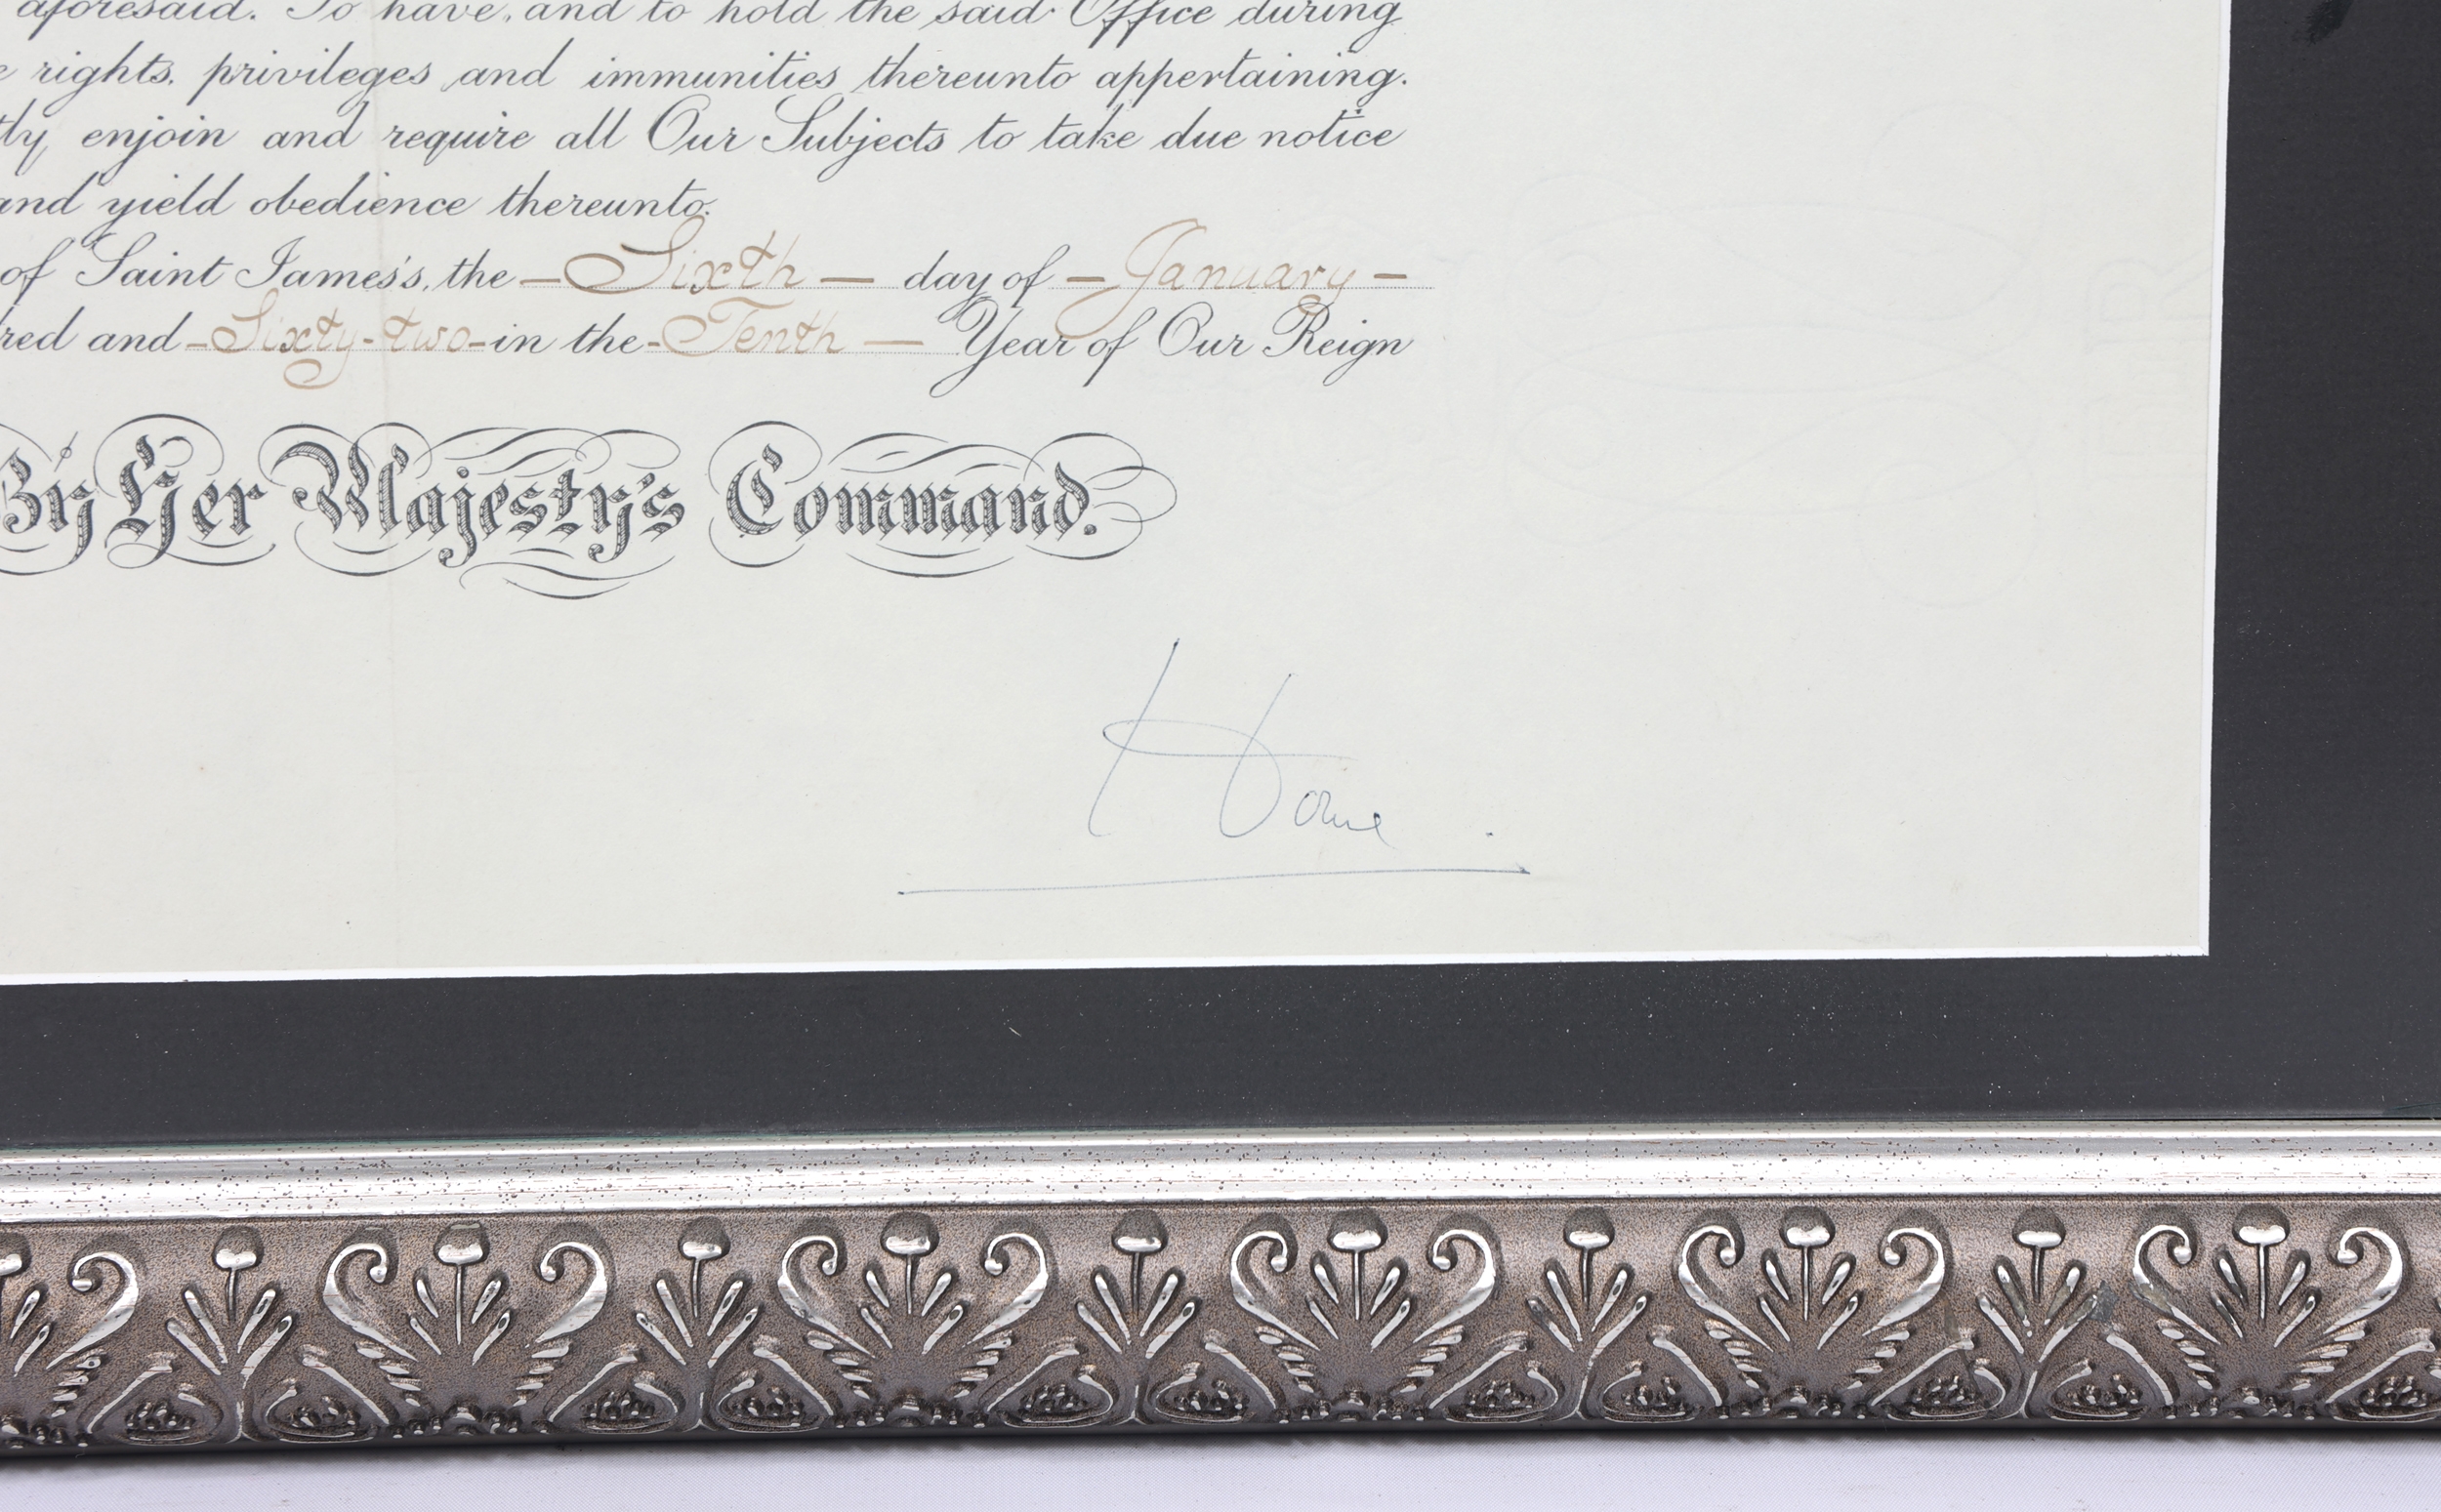 aforesaid. To have, and to hold the said Office during
rights, privileges and immunities thereunto appertaining.
enjoin and require all Our Subjects to take due notice
and yield obedience thereunto.
of Saint James's, the – Sixth – day of – January –
and – Sixty-two – in the – Tenth – Year of Our Reign
By Her Majesty's Command.
Home